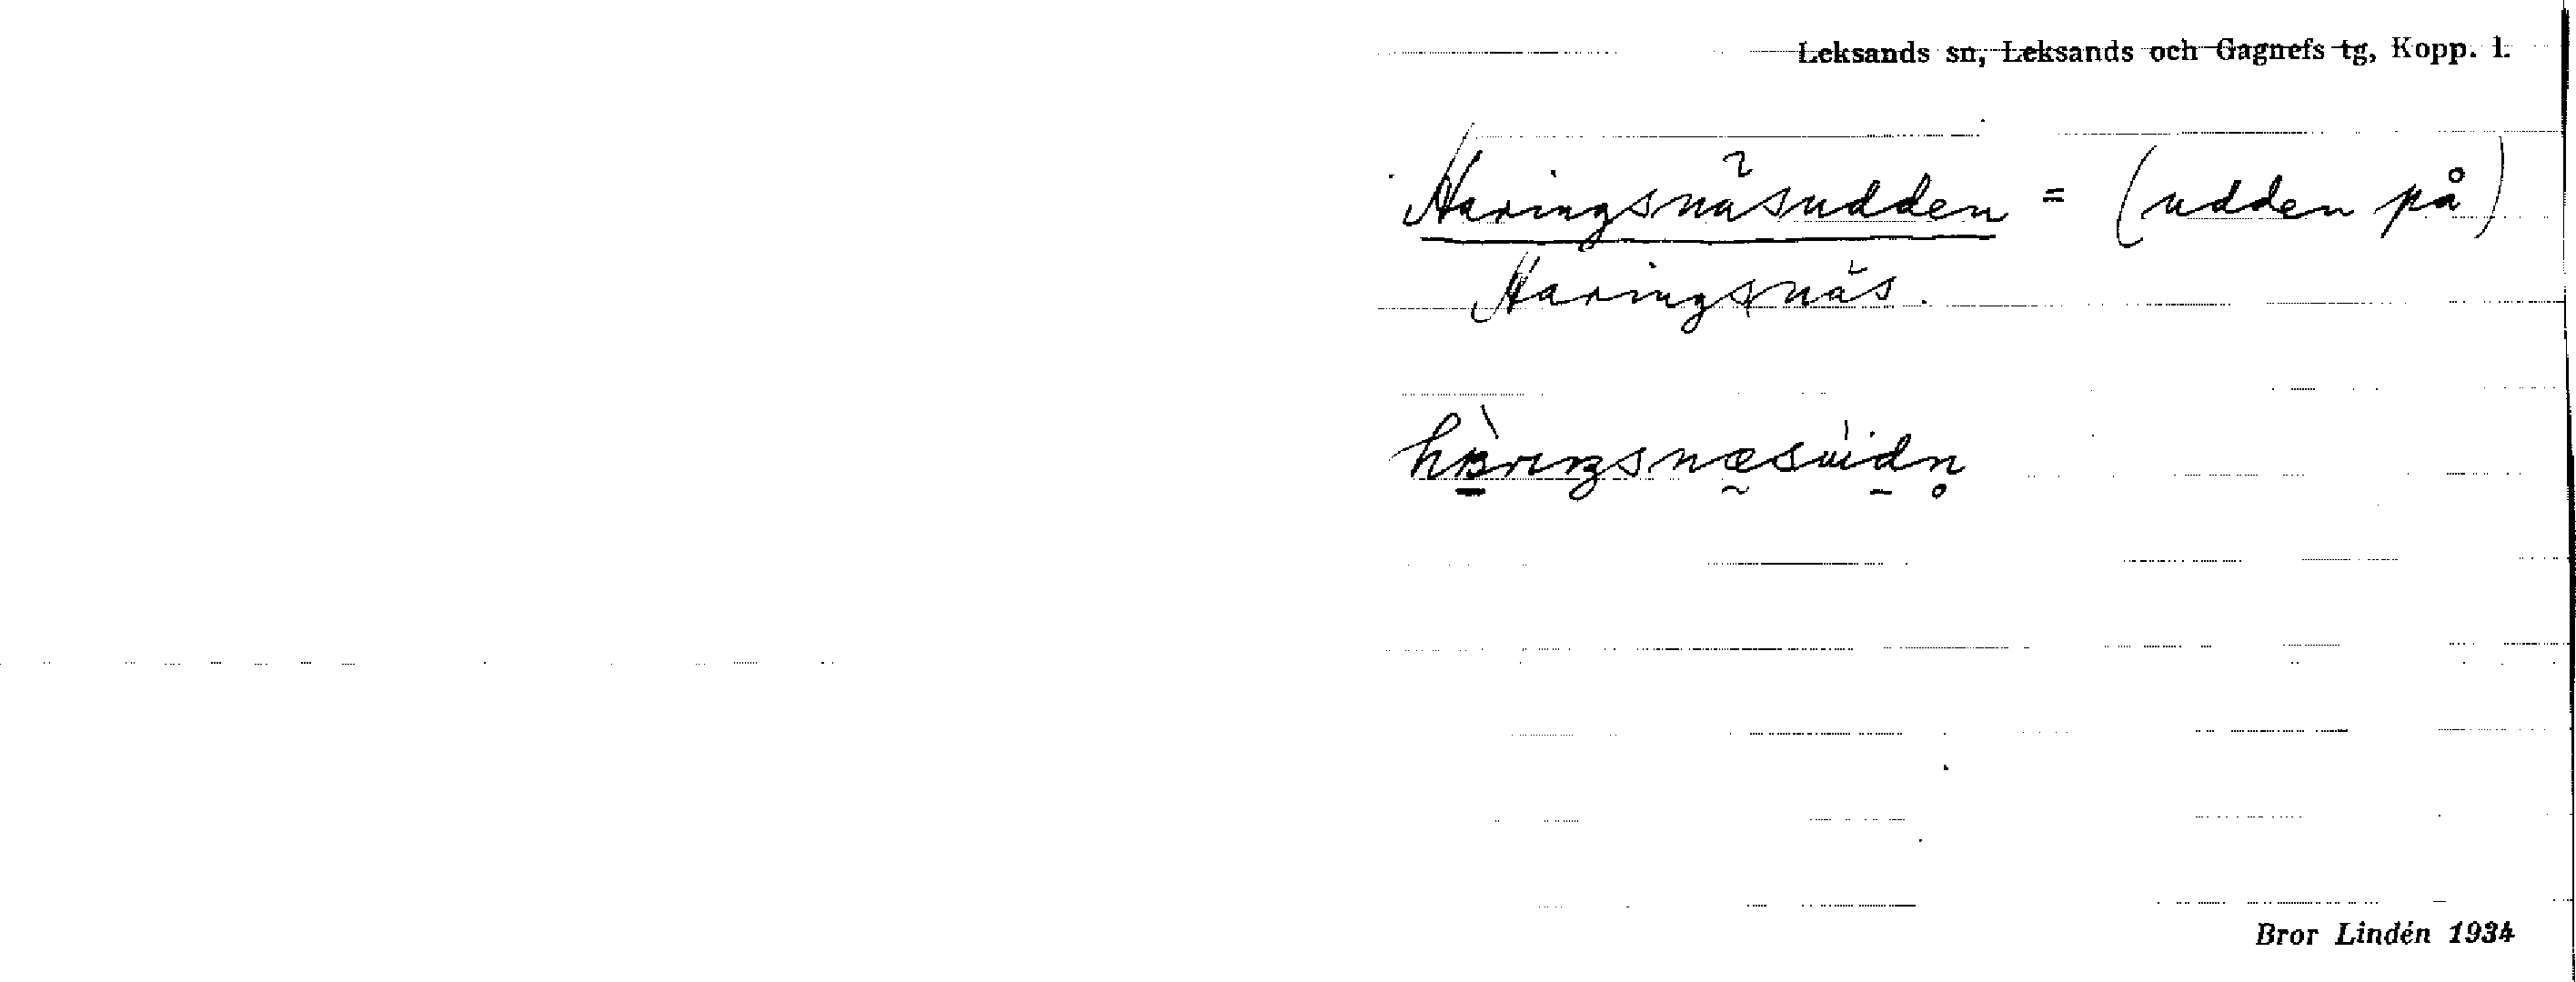 Leksands sn, Leksands och Gagnefs tg, Kopp. l.
Haringsnäsudden = (udden på)
Haringsnäs.
Bror Lindén 1934